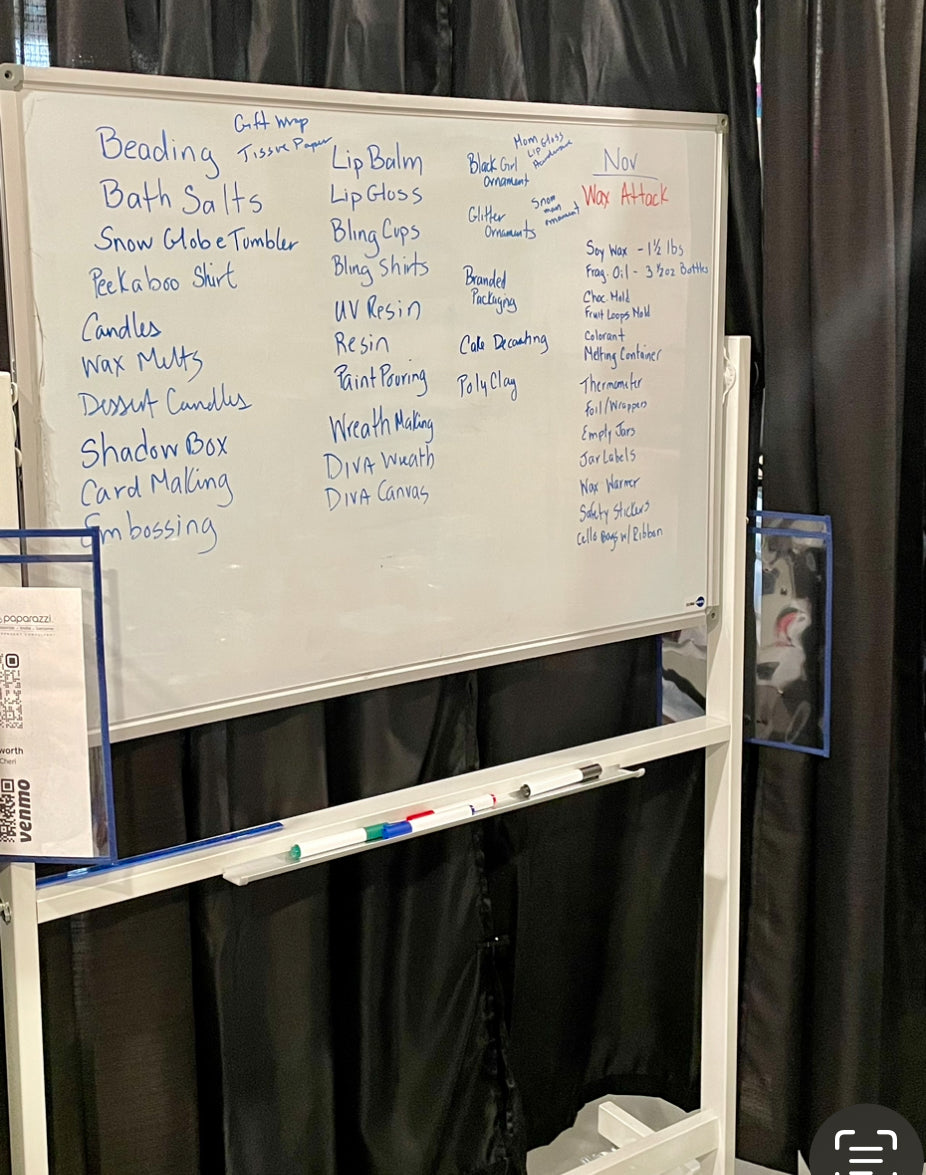 Beading
Gift Wrap
Tissue Paper
Bath Salts
Snow Globe Tumbler
Peekaboo Shirt
Candles
Wax Melts
Dessert Candles
Shadow Box
Card Making
Embossing
Lip Balm
Lip Gloss
Bling Cups
Bling Shirts
UV Resin
Resin
Paint Pouring
Wreath Making
DIVA Wreath
DIVA Canvas
Black Girl
Ornament
Mom Gloss
Lip Gloss
Glitter
Ornaments
Snow
man
ornament
Branded
Packaging
Cake Decorating
Poly Clay
Nov
Wax Attack
Soy Wax - 1 1/2 lbs
Frag. Oil - 3 1/2oz Bottles
Choc Mold
Fruit Loops Mold
Colorant
Melting Container
Thermometer
Foil/Wrappers
Empty Jars
Jar Labels
Wax Warmer
Safety Stickers
Cello Bags w/ Ribbon
paparazzi
worth
Cheri
venmo